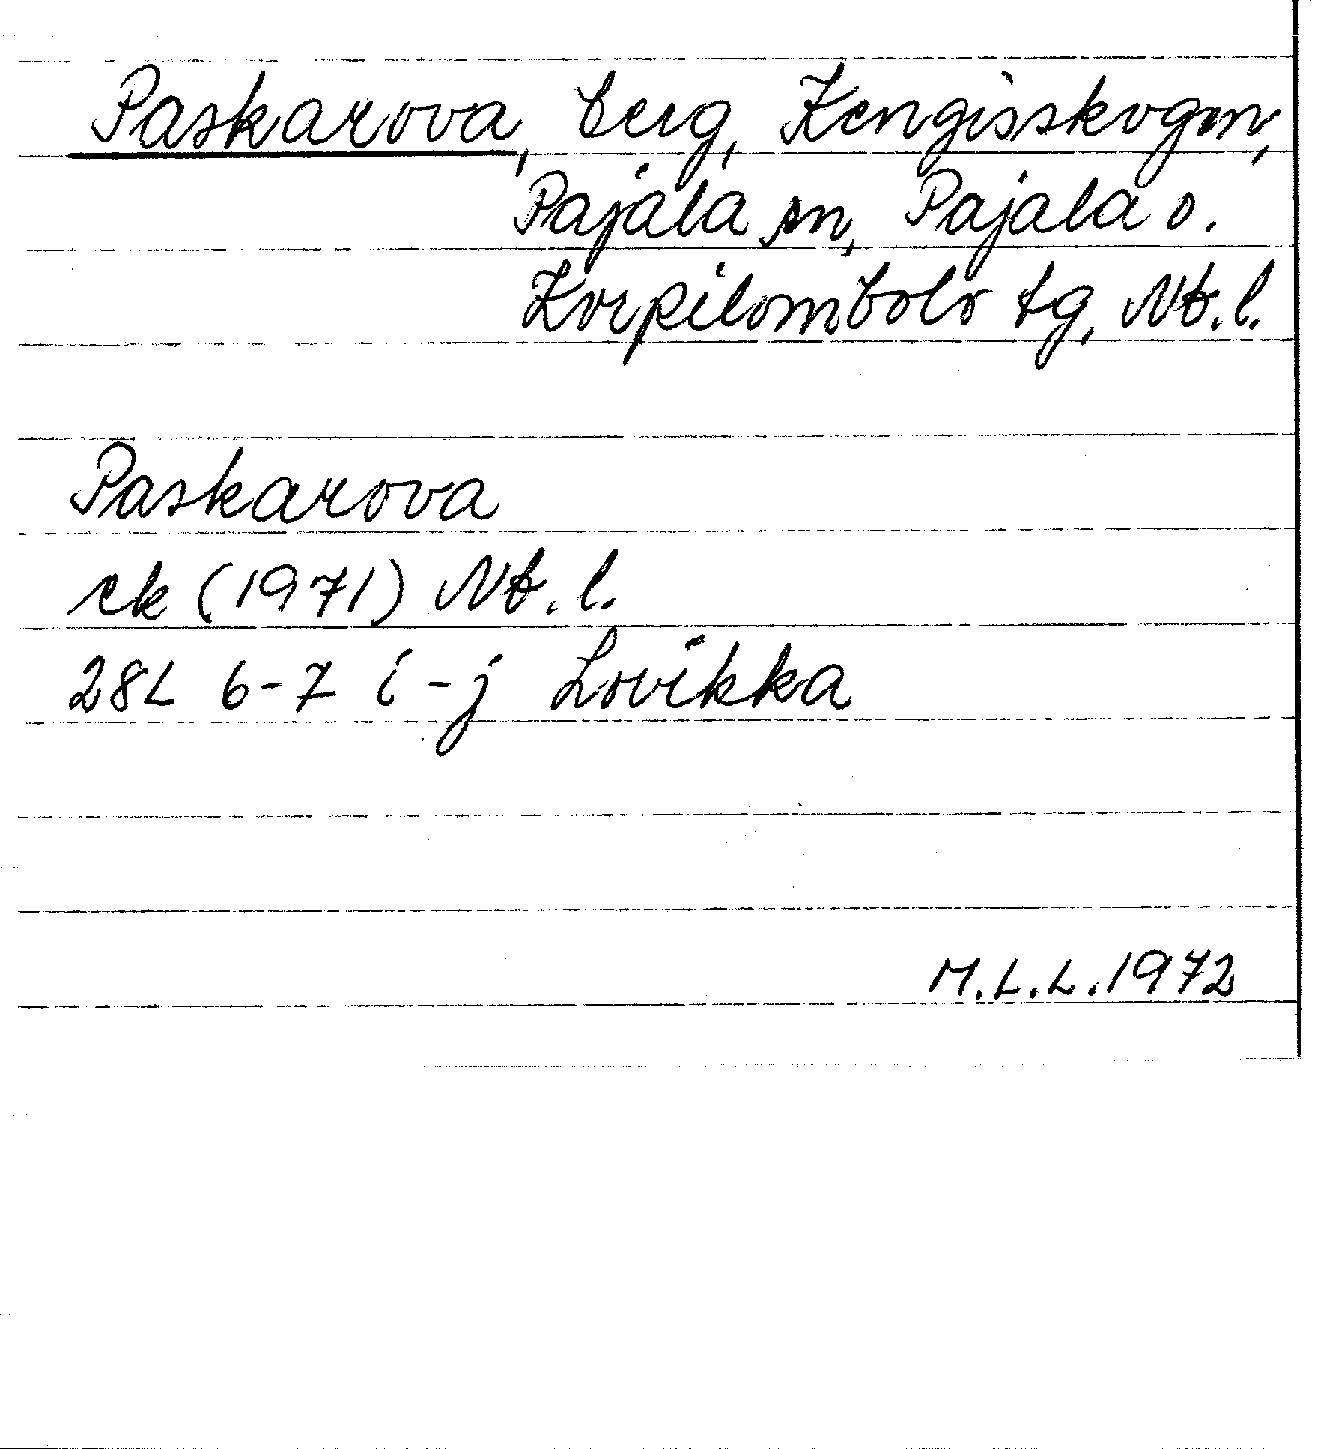 Paskarova, berg, Kengisskogen,
Pajala sn, Pajala o.
Korpilombolo tg, Nb. l.
Paskarova
ek (1971) Nb. l.
28L 6-7 i-j Lovikka
M.L.L. 1972